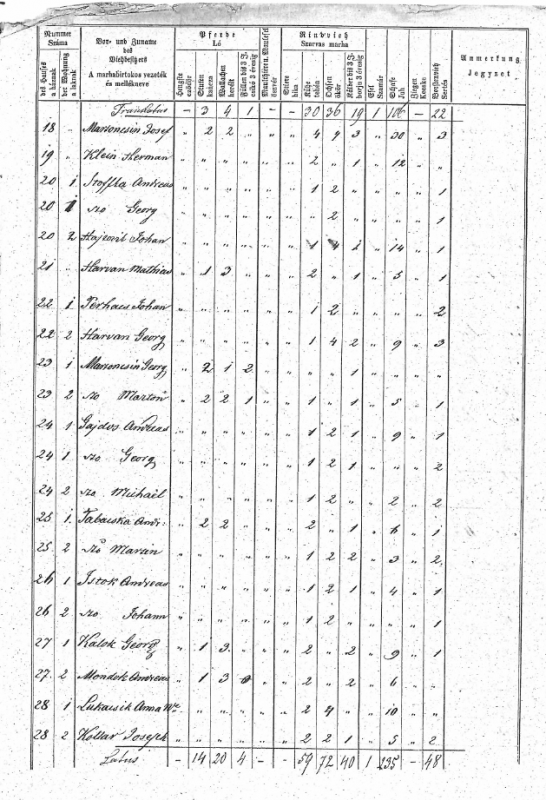 Nummer Száma | Vor- und Zuname des Viehbesitzers A marhabirtokos vezeték és mellékneve | Pferde Ló | Rindvieh Szarvas marha | Anmerkung Jegyzet
des Hauses a háznak | der Wohnung a laknak | Hengste csődör | Stuten kancza | Wallachen herélt | Füllen bis 3 J. csikó 3 évig | Maulthiere, Maulesel öszvér | Stiere bika | Kühe tehén | Ochsen ökör | Kälber bis 3 J. borju 3 évig | Esel Szamár | Schafe Juh | Ziegen Kecske | Borstenvieh Sertés
Translatus - 3 4 1 - - 30 36 19 1 106 - 22
18 Maroncsin Josef " 2 2 " " " 4 4 3 " 30 " 3
19 " Klein Herman " " " " " " 2 " 1 " 12 " "
20 1 Stoffka Andreas " " " " " " 1 2 " " " " 1
20 1 dto Georg " " " " " " " 2 " " " " 1
20 2 Hajovit Johan " " " " " " 1 4 1 " 14 " 1
21 " Harvan Mathias " 1 3 " " " 2 " 1 " 5 " 1
22 1 Terhacs Johan " " " " " " 1 2 " " " " 2
22 2 Harvan Georg " " " " " " 1 4 2 " 9 " 3
23 1 Maroncsin Georg " 2 1 2 " " " " 1 " " " "
23 2 dto Martin " 2 2 1 " " 1 " 1 " 5 " 1
24 1 Gajdos Andreas " " " " " " 1 2 1 " 9 " 1
24 1 dto Georg " " " " " " 1 2 1 " " " 2
24 2 dto Michael " " " " " " 1 2 " " 2 " 2
25 1 Tabacska Andr: " 2 2 " " " 2 " 1 " 6 " 1
25 2 dto Maran " " " " " " 1 2 2 " 3 " 2
26 1 Istok Andreas " " " " " " 1 2 1 " 4 " 1
26 2 dto Johann " " " " " " 1 2 " " " " 1
27 1 Kalok Georg " 1 3 " " " 2 " 2 " 9 " 1
27 2 Mondok Andreas " 1 3 0 " " 2 " 2 " 6 " "
28 1 Lukacsik Anna We " " " " " " 2 4 " " 10 " "
28 2 Kollar Joseph " " " " " " 2 2 1 " 5 " 2
Latus - 14 20 4 - - 59 72 40 1 235 - 48